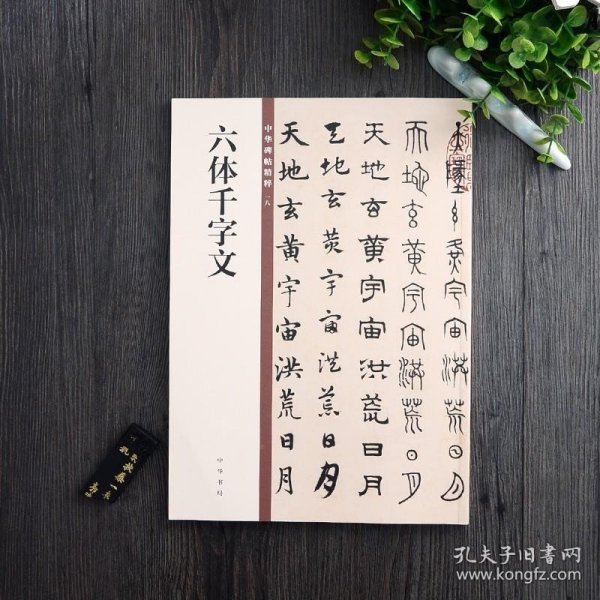 六体千字文
中华碑帖精粹 一八
中华书局
天地玄黃宇宙洪荒日月
天地玄黃宇宙洪荒日月
天地玄黃宇宙洪荒日月
天地玄黃宇宙洪荒日月
天地玄黃宇宙洪荒日月
孔夫子旧书网
www.kongfz.com